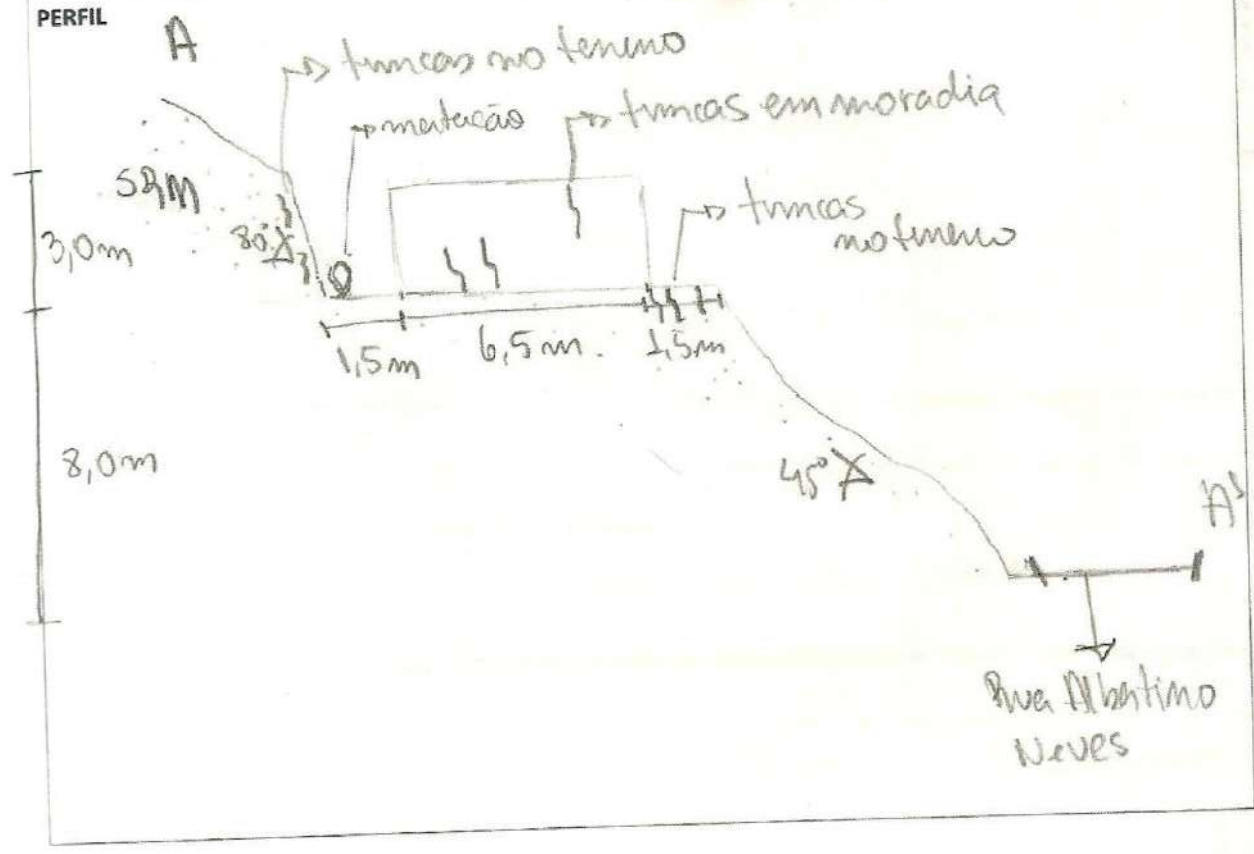 PERFIL
A
trincas no terreno
matacão
trincas em moradia
SRM
trincas
no terreno
3,0m
80°
1,5m
6,5m.
1,5m
8,0m
45°
A'
Rua Albertino
Neves